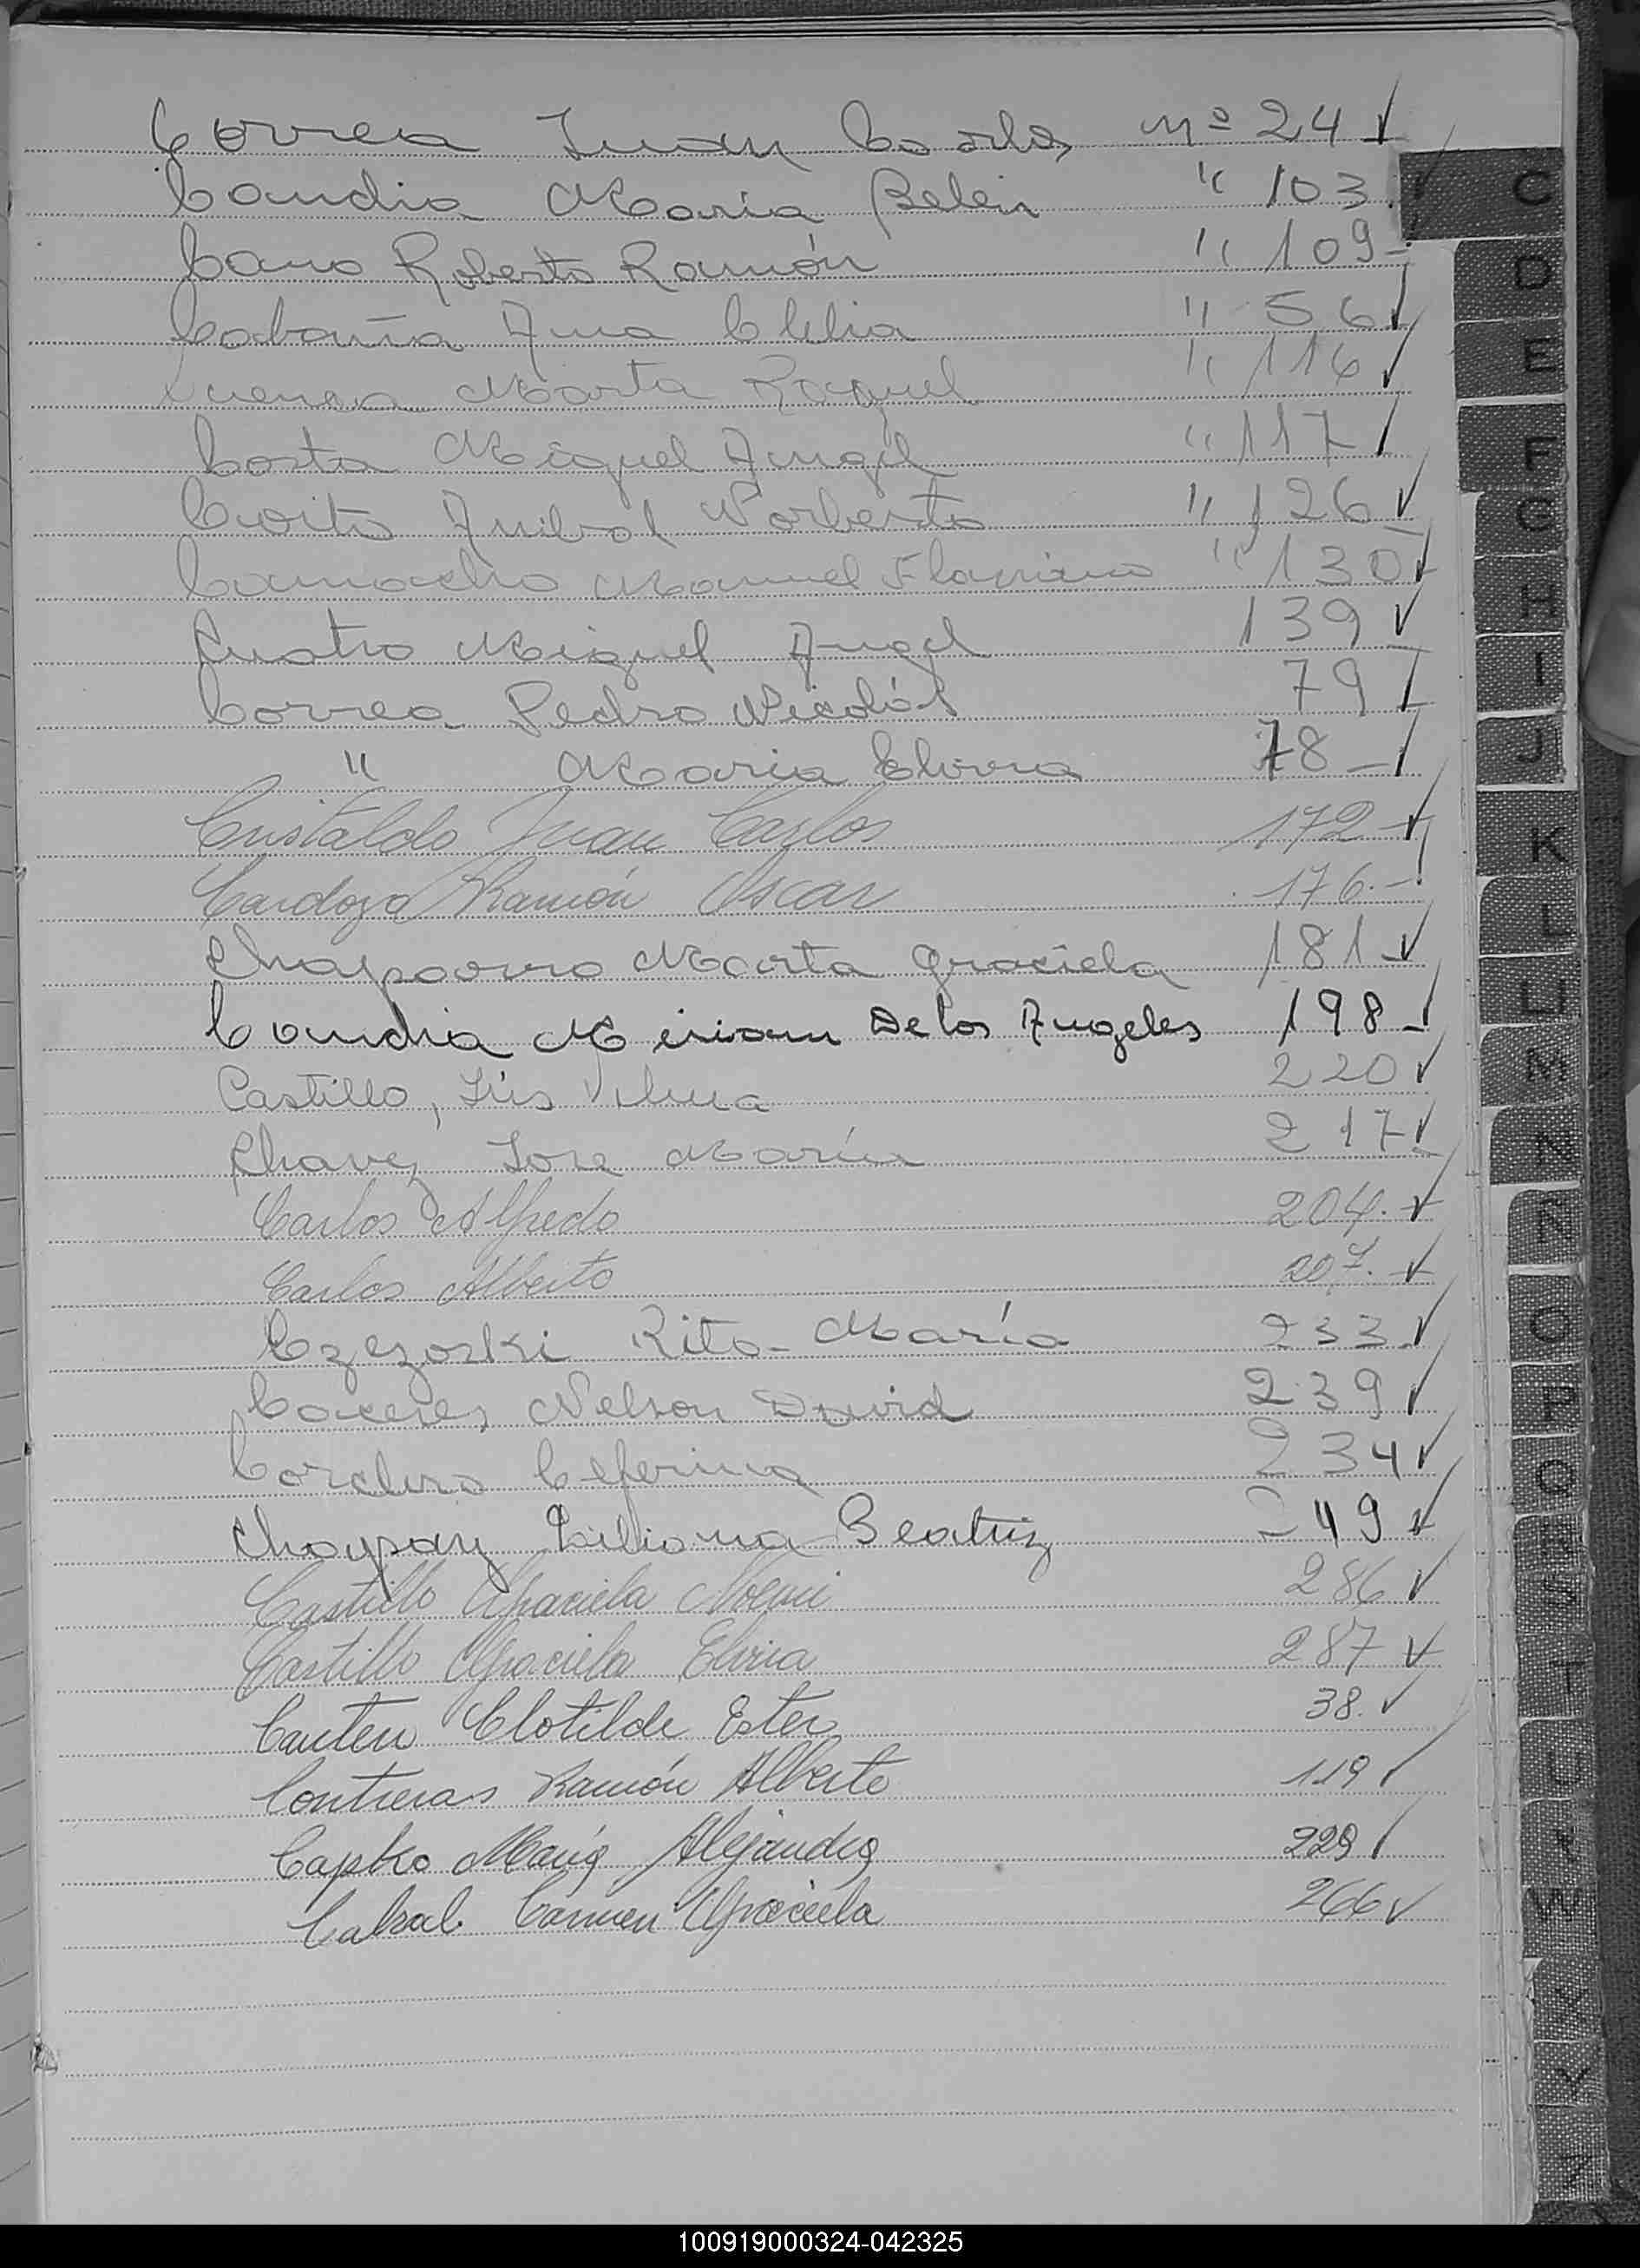 Correa Juan Carlos nº 24 ✓
Candia Maria Belén " 103 ✓
Cano Roberto Ramón " 109 ✓
Cabaña Ana Clelia " 56 ✓
Cuenca Marta Raquel " 116 ✓
Costa Miguel Angel " 117 ✓
Coito Anibal Norberto " 126 ✓
Camacho Manuel Flaviano " 130 ✓
Cuatro Miguel Angel 139 ✓
Correa Pedro Nicolás 79 ✓
" Maria Elvira 78 ✓
Cristaldo Juan Carlos 172 ✓
Cardozo Ramón Oscar 176 ✓
Chaparro Marta Graciela 181 ✓
Candia Miriam De los Angeles 198 ✓
Castillo, Lis Vilma 220 ✓
Chavez Jose María 217 ✓
Carlos Alfredo 204 ✓
Carlos Alberto 207 ✓
Czezoski Rita María 233 ✓
Caceres Nelson David 239 ✓
Cordero Ceferina 234 ✓
Chaypay Liliana Beatriz 249 ✓
Castillo Graciela Noemi 286 ✓
Castillo Graciela Elvira 287 ✓
Cantero Clotilde Ester 38 ✓
Contreras Ramón Alberto 119 ✓
Capko María Alejandra 229 ✓
Cabral Carmen Graciela 266 ✓
C
D
E
F
G
H
I
J
K
L
LL
M
N
Ñ
O
P
Q
R
S
T
U
V
W
X
Y
Z
100919000324-042325